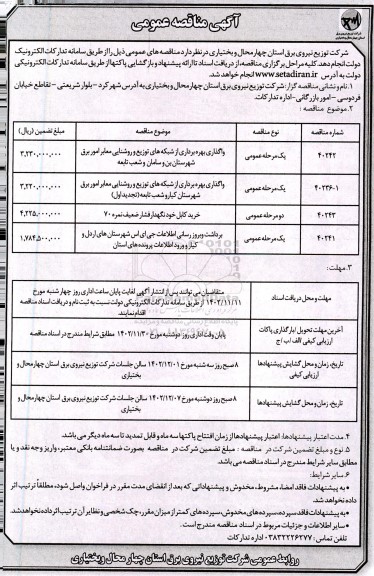 آگهی مناقصه عمومی
شرکت توزیع نیروی برق استان چهارمحال و بختیاری در نظر دارد مناقصه های عمومی ذیل را از طریق سامانه تدارکات الکترونیک
دولت انجام دهد. کلیه مراحل برگزاری مناقصه، از دریافت اسناد تا ارائه پیشنهاد و بازگشایی پاکتها از طریق سامانه تدارکات الکترونیکی
دولت به آدرس www.setadiran.ir انجام خواهد شد.
۱. نام و نشانی مناقصه گزار: شرکت توزیع نیروی برق استان چهارمحال و بختیاری به آدرس شهرکرد - بلوار شریعتی - تقاطع خیابان
فردوسی - امور بازرگانی - اداره تدارکات.
۲. موضوع مناقصه :
شماره مناقصه | نوع مناقصه | موضوع مناقصه | مبلغ تضمین (ریال)
۴۰۲۴۲ | یک مرحله عمومی | واگذاری بهره برداری از شبکه های توزیع و روشنایی معابر امور برق شهرستان بن و سامان و شعب تابعه | ۳,۲۳۰,۰۰۰,۰۰۰
۴۰۲۳۶-۱ | یک مرحله عمومی | واگذاری بهره برداری از شبکه های توزیع و روشنایی معابر امور برق شهرستان کیار و شعب تابعه (تجدید اول) | ۳,۲۳۰,۰۰۰,۰۰۰
۴۰۲۴۳ | دو مرحله عمومی | خرید کابل خودنگهدار فشار ضعیف نمره ۷۰ | ۴,۲۲۵,۰۰۰,۰۰۰
۴۰۲۴۱ | یک مرحله عمومی | برداشت و بروز رسانی اطلاعات جی ای اس شهرستان های اردل و کیار و ورود اطلاعات پرونده های استان | ۱,۷۸۴,۵۰۰,۰۰۰
۳. مهلت :
مهلت و محل دریافت اسناد | متقاضیان می توانند پس از انتشار آگهی لغایت پایان ساعت اداری روز چهار شنبه مورخ ۱۴۰۲/۱۱/۱۱ از طریق سامانه تدارکات الکترونیکی دولت نسبت به ثبت نام و دریافت اسناد مناقصه اقدام نمایند
آخرین مهلت تحویل /بارگذاری پاکات ارزیابی کیفی /الف/ب /ج | پایان وقت اداری روز دوشنبه مورخ ۱۴۰۲/۱۱/۳۰ مطابق شرایط مندرج در اسناد مناقصه
تاریخ، زمان و محل گشایش پیشنهادها ارزیابی کیفی | ۸ صبح روز سه شنبه مورخ ۱۴۰۲/۱۲/۰۱ سالن جلسات شرکت توزیع نیروی برق استان چهارمحال و بختیاری
تاریخ، زمان و محل گشایش پیشنهادها | ۸ صبح روز دوشنبه مورخ ۱۴۰۲/۱۲/۰۷ سالن جلسات شرکت توزیع نیروی برق استان چهارمحال و بختیاری
۴. مدت اعتبار پیشنهادها: اعتبار پیشنهادها از زمان افتتاح پاکتها سه ماه و قابل تمدید تا سه ماه دیگر می باشد.
۵. نوع و مبلغ تضمین شرکت در مناقصه : مبلغ تضمین شرکت در مناقصه بصورت ضمانتنامه بانکی معتبر، واریز وجه نقد و یا
مطابق سایر شرایط مندرج در اسناد مناقصه می باشد.
۶. سایر شرایط:
• به پیشنهادات فاقد امضا، مشروط، مخدوش و پیشنهاداتی که بعد از انقضای مدت مقرر در فراخوان واصل شود، مطلقاً ترتیب اثر
داده نخواهد شد.
• به پیشنهادات فاقد سپرده، سپرده های مخدوش، سپرده های کمتر از میزان مقرر، چک شخصی و نظایر آن ترتیب اثر داده نخواهد شد.
• سایر اطلاعات و جزئیات مربوط در اسناد مناقصه مندرج است.
تلفن تماس: ۰۳۸۳۲۲۲۶۲۷۷ اداره تدارکات
روابط عمومی شرکت توزیع نیروی برق استان چهار محال وبختیاری